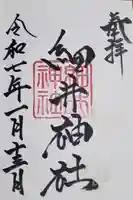 奉拝
細井神社
令和七年一月十三日